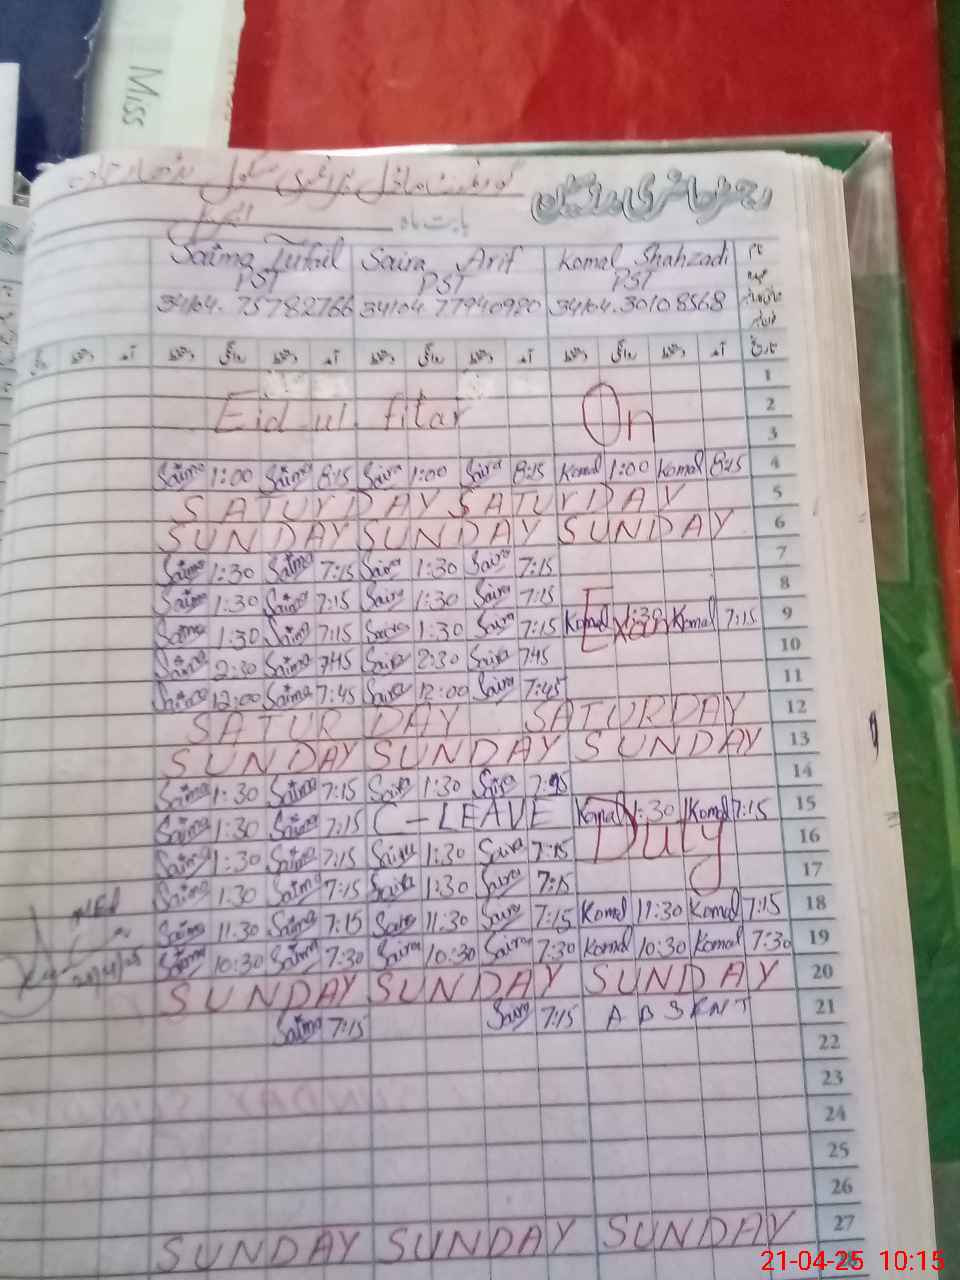 Miss
رجسٹر حاضری مدرسین
گورنمنٹ ماڈل پرائمری سکول
بابت ماہ اپریل
Saima Tufail Saira Arif Komal Shahzadi نام
PST PST PST عہدہ
34104.75782766 34104.77940980 34104.30108568
دستخط روانگی دستخط آمد دستخط روانگی دستخط آمد دستخط روانگی دستخط آمد تاریخ
1
Eid ul fitar On 2
3
Saima 1:00 Saima 8:15 Saira 1:00 Saira 8:15 Komal 1:00 Komal 8:15 4
SATURDAY SATURDAY 5
SUNDAY SUNDAY SUNDAY 6
Saima 1:30 Saima 7:15 Saira 1:30 Saira 7:15 7
Saima 1:30 Saima 7:15 Saira 1:30 Saira 7:15 8
Saima 1:30 Saima 7:15 Saira 1:30 Saira 7:15 Komal 1:30 Komal 7:15 9
Exam
Saima 2:30 Saima 7:45 Saira 2:30 Saira 7:45 10
Saima 12:00 Saima 7:45 Saira 12:00 Saira 7:45 11
SATURDAY SATURDAY 12
SUNDAY SUNDAY SUNDAY 13
Saima 1:30 Saima 7:15 Saira 1:30 Saira 7:15 14
Saima 1:30 Saima 7:15 C-LEAVE Komal 1:30 Komal 7:15 15
Saima 1:30 Saima 7:15 Saira 1:30 Saira 7:15 Duty 16
Saima 1:30 Saima 7:15 Saira 1:30 Saira 7:15 17
Saima 11:30 Saima 7:15 Saira 11:30 Saira 7:15 Komal 11:30 Komal 7:15 18
Saima 10:30 Saima 7:30 Saira 10:30 Saira 7:30 Komal 10:30 Komal 7:30 19
SUNDAY SUNDAY SUNDAY 20
Saima 7:15 Saira 7:15 ABSENT 21
22
23
24
25
26
SUNDAY SUNDAY SUNDAY 27
21-04-25 10:15